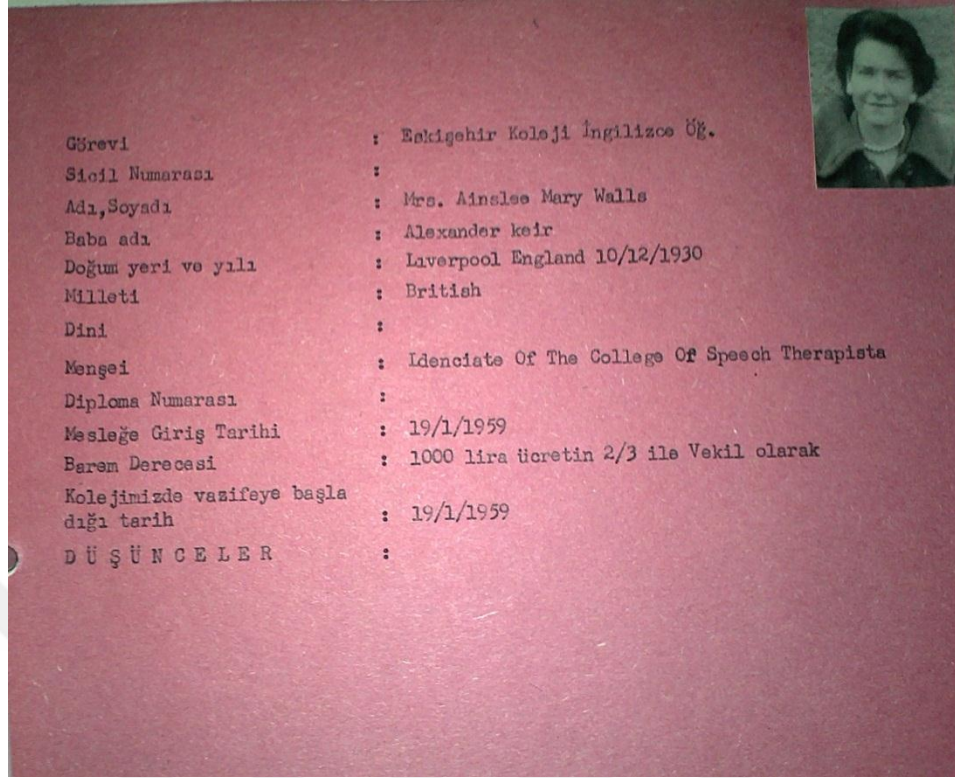 Görevi : Eskişehir Koleji İngilizce Öğ.
Sicil Numarası :
Adı,Soyadı : Mrs. Ainslee Mary Walls
Baba adı : Alexander keir
Doğum yeri ve yılı : Liverpool England 10/12/1930
Milleti : British
Dini :
Menşei : Idenciate Of The College Of Speech Therapista
Diploma Numarası :
Mesleğe Giriş Tarihi : 19/1/1959
Barem Derecesi : 1000 lira ücretin 2/3 ile Vekil olarak
Kolejimizde vazifeye başla
dığı tarih : 19/1/1959
D Ü Ş Ü N C E L E R :